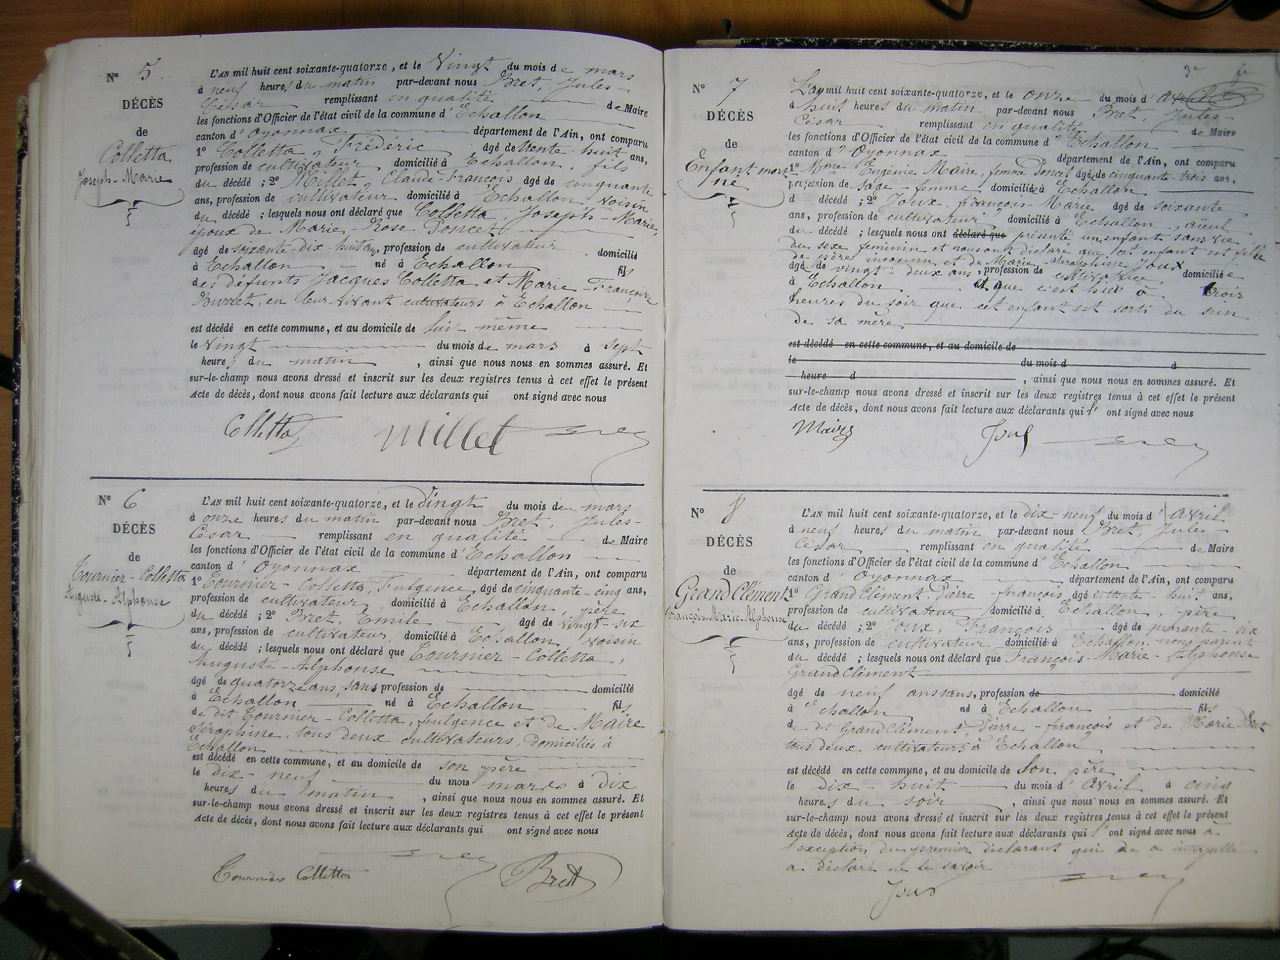 N° 5.
DÉCÈS
de
Colletta
Joseph-Marie
L'AN mil huit cent soixante-quatorze, et le Vingt du mois de mars
à neuf heures du matin par-devant nous Bret, Jules-
César remplissant en qualité de Maire
les fonctions d'Officier de l'état civil de la commune d'Echallon
canton d'Oyonnax département de l'Ain, ont comparu
1° Colletta, Frédéric âgé de trente-huit ans,
profession de cultivateur domicilié à Echallon, fils
du décédé; 2° Millet, Claude-François âgé de cinquante
ans, profession de cultivateur domicilié à Echallon, voisin
du décédé; lesquels nous ont déclaré que Colletta, Joseph-Marie,
époux de Marie, Rose Poncet
âgé de soixante dix-huit ans, profession de cultivateur domicilié
à Echallon né à Echallon fil
des défunts Jacques Colletta et Marie Françoise
Burdet, en leur vivant cultivateurs à Echallon
est décédé en cette commune, et au domicile de lui-même
le Vingt du mois de mars à sept
heures du matin, ainsi que nous nous en sommes assuré. Et
sur-le-champ nous avons dressé et inscrit sur les deux registres tenus à cet effet le présent
Acte de décès, dont nous avons fait lecture aux déclarants qui ont signé avec nous
Colletta Millet Bret
N° 6
DÉCÈS
de
Tournier-Colletta
Auguste-Alphonse
L'AN mil huit cent soixante-quatorze, et le vingt du mois de mars
à onze heures du matin par-devant nous Bret, Jules-
César remplissant en qualité de Maire
les fonctions d'Officier de l'état civil de la commune d'Echallon
canton d'Oyonnax département de l'Ain, ont comparu
1° Tournier-Colletta, Fulgence, âgé de cinquante-cinq ans,
profession de cultivateur, domicilié à Echallon, père
du décédé; 2° Bret, Emile âgé de vingt-six
ans, profession de cultivateur, domicilié à Echallon, voisin
du décédé; lesquels nous ont déclaré que Tournier-Colletta,
Auguste-Alphonse
âgé de quatorze ans, sans profession de domicilié
à Echallon né à Echallon fil
de dit Tournier-Colletta, fulgence et de Maire
Séraphine, tous deux cultivateurs, domiciliés à
Echallon
est décédé en cette commune, et au domicile de son père
le dix-neuf du mois mars à dix
heures du matin, ainsi que nous nous en sommes assuré. Et
sur-le-champ nous avons dressé et inscrit sur les deux registres tenus à cet effet le présent
Acte de décès, dont nous avons fait lecture aux déclarants qui ont signé avec nous
Tournier Colletta Bret
N° 7
DÉCÈS
de
Enfant mort
né
L'an mil huit cent soixante-quatorze, et le onze du mois d'avril
à huit heures du matin par-devant nous Bret, Jules-
César remplissant en qualité de Maire
les fonctions d'Officier de l'état civil de la commune d'Echallon
canton d'Oyonnax département de l'Ain, ont comparu
1° Mme Eugénie Maire, femme Poncet âgée de cinquante-trois ans,
profession de sage-femme, domiciliée à Echallon
d décédé; 2° Joux, françois Marie âgé de soixante
ans, profession de cultivateur domicilié à Echallon, aïeul
du décédé; lesquels nous ont déclaré que présenté un enfant sans vie
du sexe féminin et nous ont déclaré que cet enfant est fille
de père inconnu et de Marie Séraphine Joux
âgé de vingt-deux ans, profession de cultivatrice, domiciliée
à Echallon et que c'est hier à trois
heures du soir que cet enfant est sorti du sein
de sa mère
est décédé en cette commune, et au domicile de
le du mois d à
heure d , ainsi que nous nous en sommes assuré. Et
sur-le-champ nous avons dressé et inscrit sur les deux registres tenus à cet effet le présent
Acte de décès, dont nous avons fait lecture aux déclarants qui l' ont signé avec nous
Maire Joux Bret
N° 8
DÉCÈS
de
GrandClément
François-Marie-Alphonse
L'AN mil huit cent soixante-quatorze, et le dix-neuf du mois d'avril
à neuf heures du matin par-devant nous Bret, Jules
César remplissant en qualité de Maire
les fonctions d'Officier de l'état civil de la commune d'Echallon
canton d'Oyonnax département de l'Ain, ont comparu
1° GrandClément Pierre-françois âgé de trente-huit ans,
profession de cultivateur domicilié à Echallon, père
du décédé; 2° Joux, François âgé de quarante-six
ans, profession de cultivateur domicilié à Echallon, non parent
du décédé; lesquels nous ont déclaré que François-Marie-Alphonse
GrandClément
âgé de neuf ans sans, profession de domicilié
à Echallon né à Echallon fil
d de GrandClément, Pierre-françois et de Marie Bret
tous deux cultivateurs à Echallon
est décédé en cette commune, et au domicile de son père
le dix-huit du mois d'avril à cinq
heures du soir, ainsi que nous nous en sommes assuré. Et
sur-le-champ nous avons dressé et inscrit sur les deux registres tenus à cet effet le présent
Acte de décès, dont nous avons fait lecture aux déclarants qui l'ont signé avec nous à
l'exception du premier déclarant qui de ce interpellé
a déclaré ne le savoir
Joux Bret